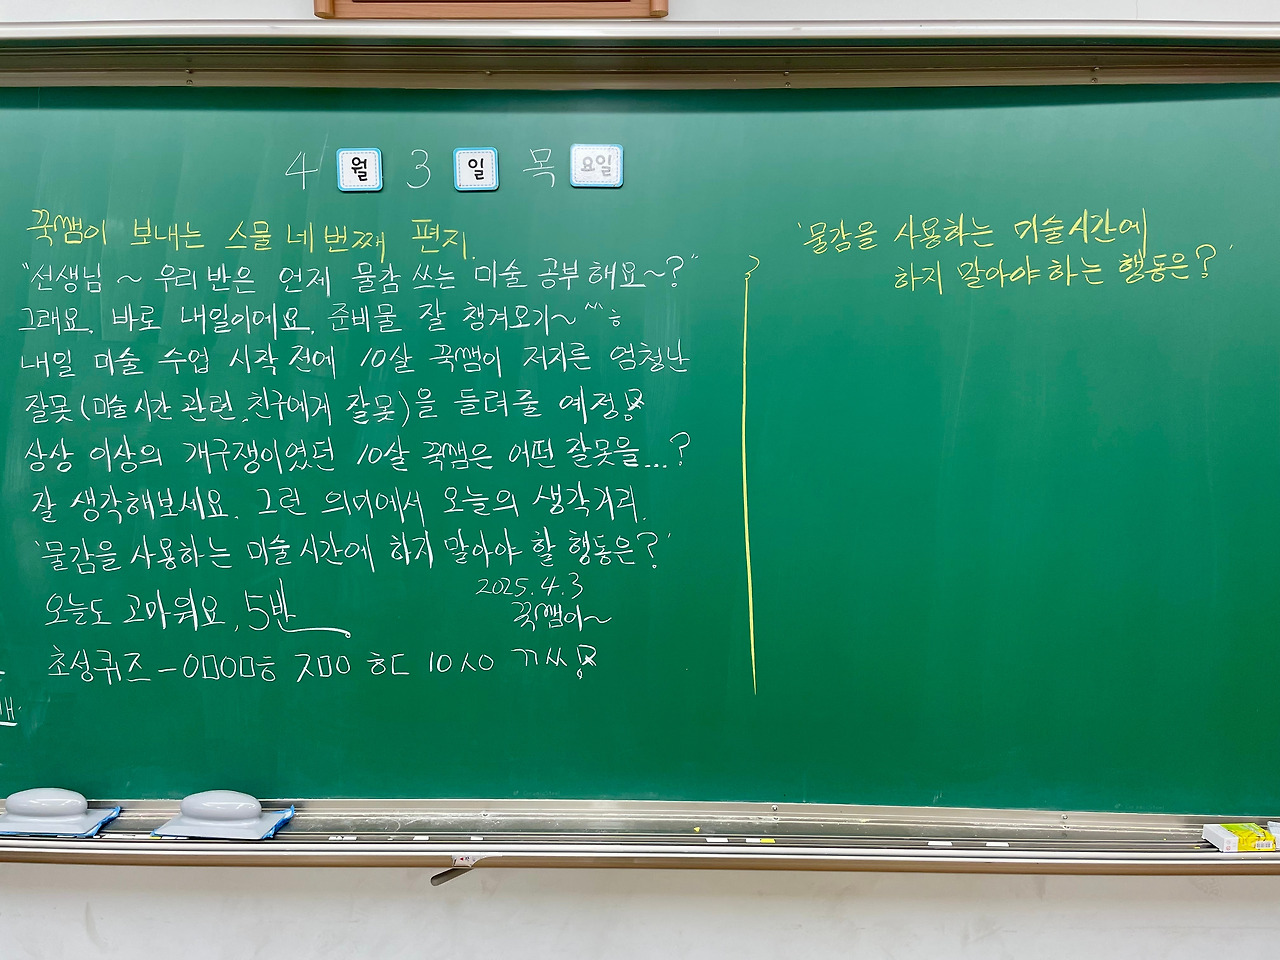 4월 3일 목요일
꾹쌤이 보내는 스물네번째 편지.
"선생님~ 우리반은 언제 물감 쓰는 미술 공부해요~?"
그래요. 바로 내일이에요. 준비물 잘 챙겨오기~^^ㅎ
내일 미술 수업 시작 전에 10살 꾹쌤이 저지른 엄청난
잘못(미술시간 관련, 친구에게 잘못)을 들려줄 예정!
상상 이상의 개구쟁이였던 10살 꾹쌤은 어떤 잘못을...?
잘 생각해보세요. 그런 의미에서 오늘의 생각거리.
'물감을 사용하는 미술시간에 하지 말아야 할 행동은?'
오늘도 고마워요, 5반
2025.4.3
꾹쌤이~
초성퀴즈-ㅇㅁㅇㅁㅎ ㅈㅁㅇ ㅎㄷ 10ㅅㅇ ㄲㅆ!
'물감을 사용하는 미술시간에
하지 말아야 하는 행동은?'